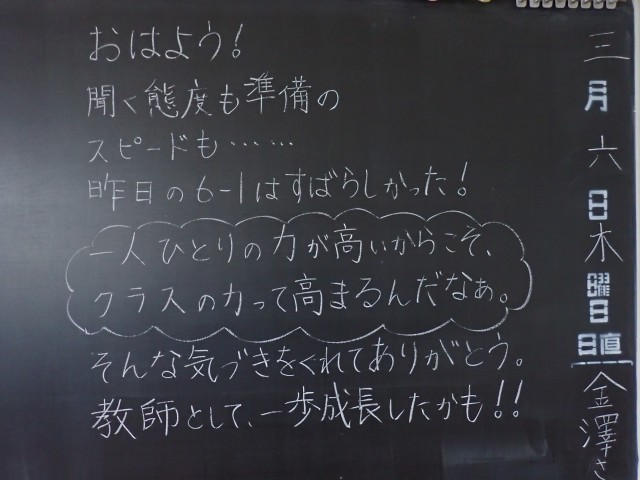 おはよう!
聞く態度も準備の
スピードも……
昨日の6-1はすばらしかった!
一人ひとりの力が高いからこそ、
クラスの力って高まるんだなぁ。
そんな気づきをくれてありがとう。
教師として、一歩成長したかも!!
三月六日木曜日
日直
金澤さ